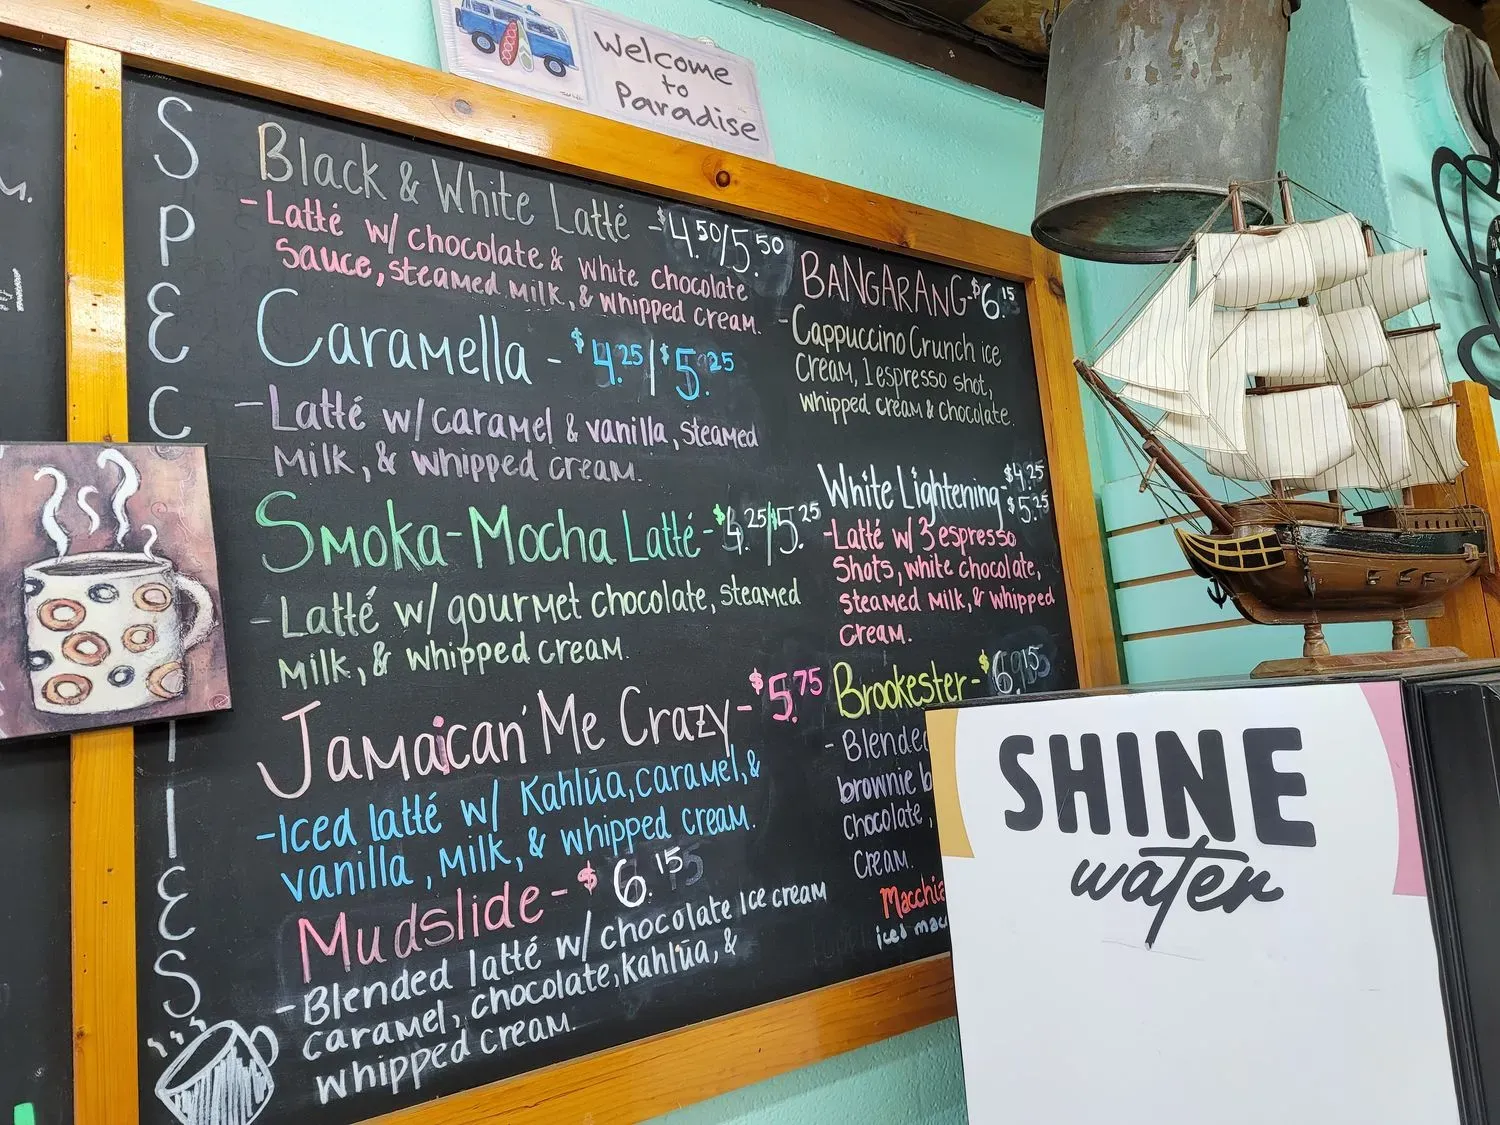 Welcome
to
Paradise
SPECIALTIES
Black & White Latté - $4.50/5.50
- Latté w/ chocolate & white chocolate
sauce, steamed milk, & whipped cream.
Caramella - $4.25/$5.25
- Latté w/ caramel & vanilla, steamed
milk, & whipped cream.
Smoka-Mocha Latté - $4.25/$5.25
- Latté w/ gourmet chocolate, steamed
milk, & whipped cream.
Jamaican' Me Crazy - $5.75
- Iced latté w/ Kahlūa, caramel, &
vanilla, milk, & whipped cream.
Mudslide - $6.15
- Blended latté w/ chocolate ice cream
caramel, chocolate, kahlūa, &
whipped cream.
BANGARANG - $6.15
- Cappuccino Crunch ice
cream, 1 espresso shot,
whipped cream & chocolate.
White Lightening - $4.25
$5.25
- Latté w/ 3 espresso
shots, white chocolate,
steamed milk, & whipped
cream.
Brookester - $6.15
- Blended
brownie
chocolate,
cream.
iced
SHINE
water